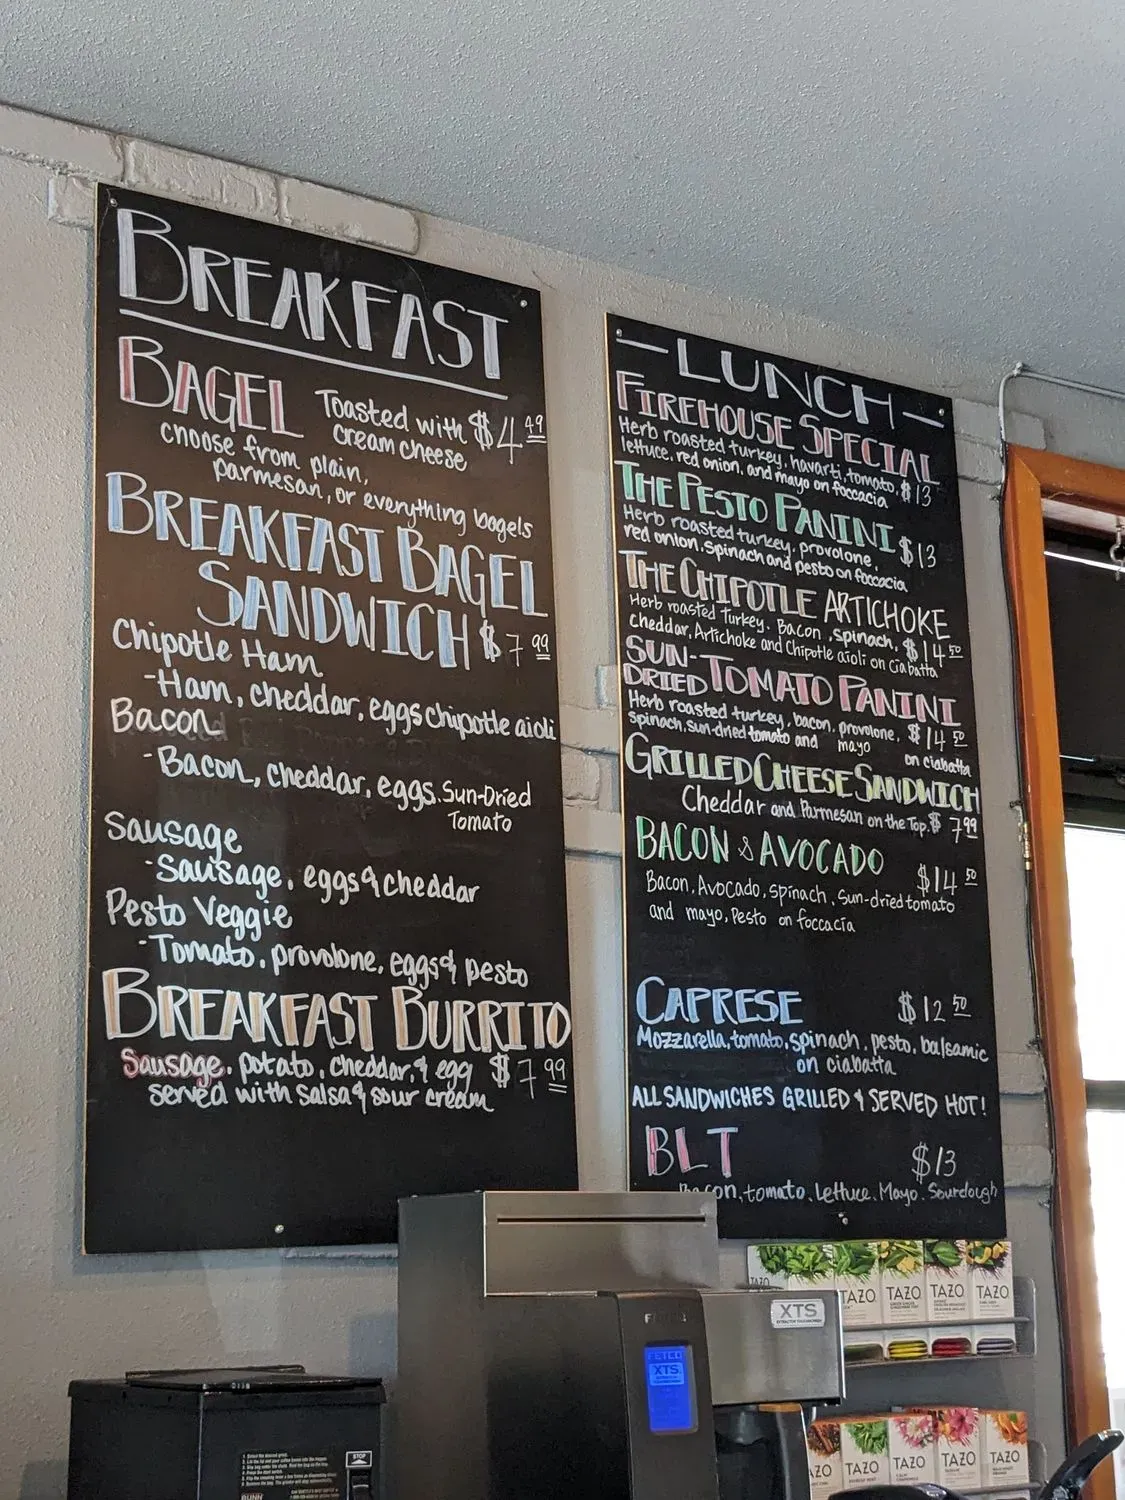 BREAKFAST
BAGEL Toasted with $4 49
cream cheese
choose from plain,
parmesan, or everything bagels
BREAKFAST BAGEL
SANDWICH $7 99
Chipotle Ham
-Ham, cheddar, eggs chipotle aioli
Bacon
-Bacon, cheddar, eggs. Sun-Dried
Tomato
Sausage
-Sausage, eggs & cheddar
Pesto Veggie
-Tomato, provolone, eggs & pesto
BREAKFAST BURRITO
Sausage, potato, cheddar, & egg $7 99
served with salsa & sour cream
LUNCH
FIREHOUSE SPECIAL
Herb roasted turkey, havarti, tomato,
lettuce, red onion, and mayo on foccacia $13
THE PESTO PANINI
Herb roasted turkey, provolone, $13
red onion, spinach and pesto on foccacia
THE CHIPOTLE ARTICHOKE
Herb roasted Turkey, Bacon, spinach, $14 50
cheddar, Artichoke and Chipotle aioli on ciabatta
SUN-
DRIED TOMATO PANINI
Herb roasted turkey, bacon, provolone, $14 50
spinach, sun-dried tomato and mayo
on ciabatta
GRILLED CHEESE SANDWICH
Cheddar and Parmesan on the Top. $7 99
BACON & AVOCADO $14 50
Bacon, Avocado, spinach, sun-dried tomato
and mayo, Pesto on foccacia
CAPRESE $12 50
Mozzarella, tomato, spinach, pesto, balsamic
on ciabatta
ALL SANDWICHES GRILLED & SERVED HOT!
BLT $13
Bacon, tomato, Lettuce, Mayo, Sourdough
TAZO TAZO TAZO TAZO TAZO
XTS
FETCO
XTS
STOP
BUNN
TAZO TAZO TAZO TAZO